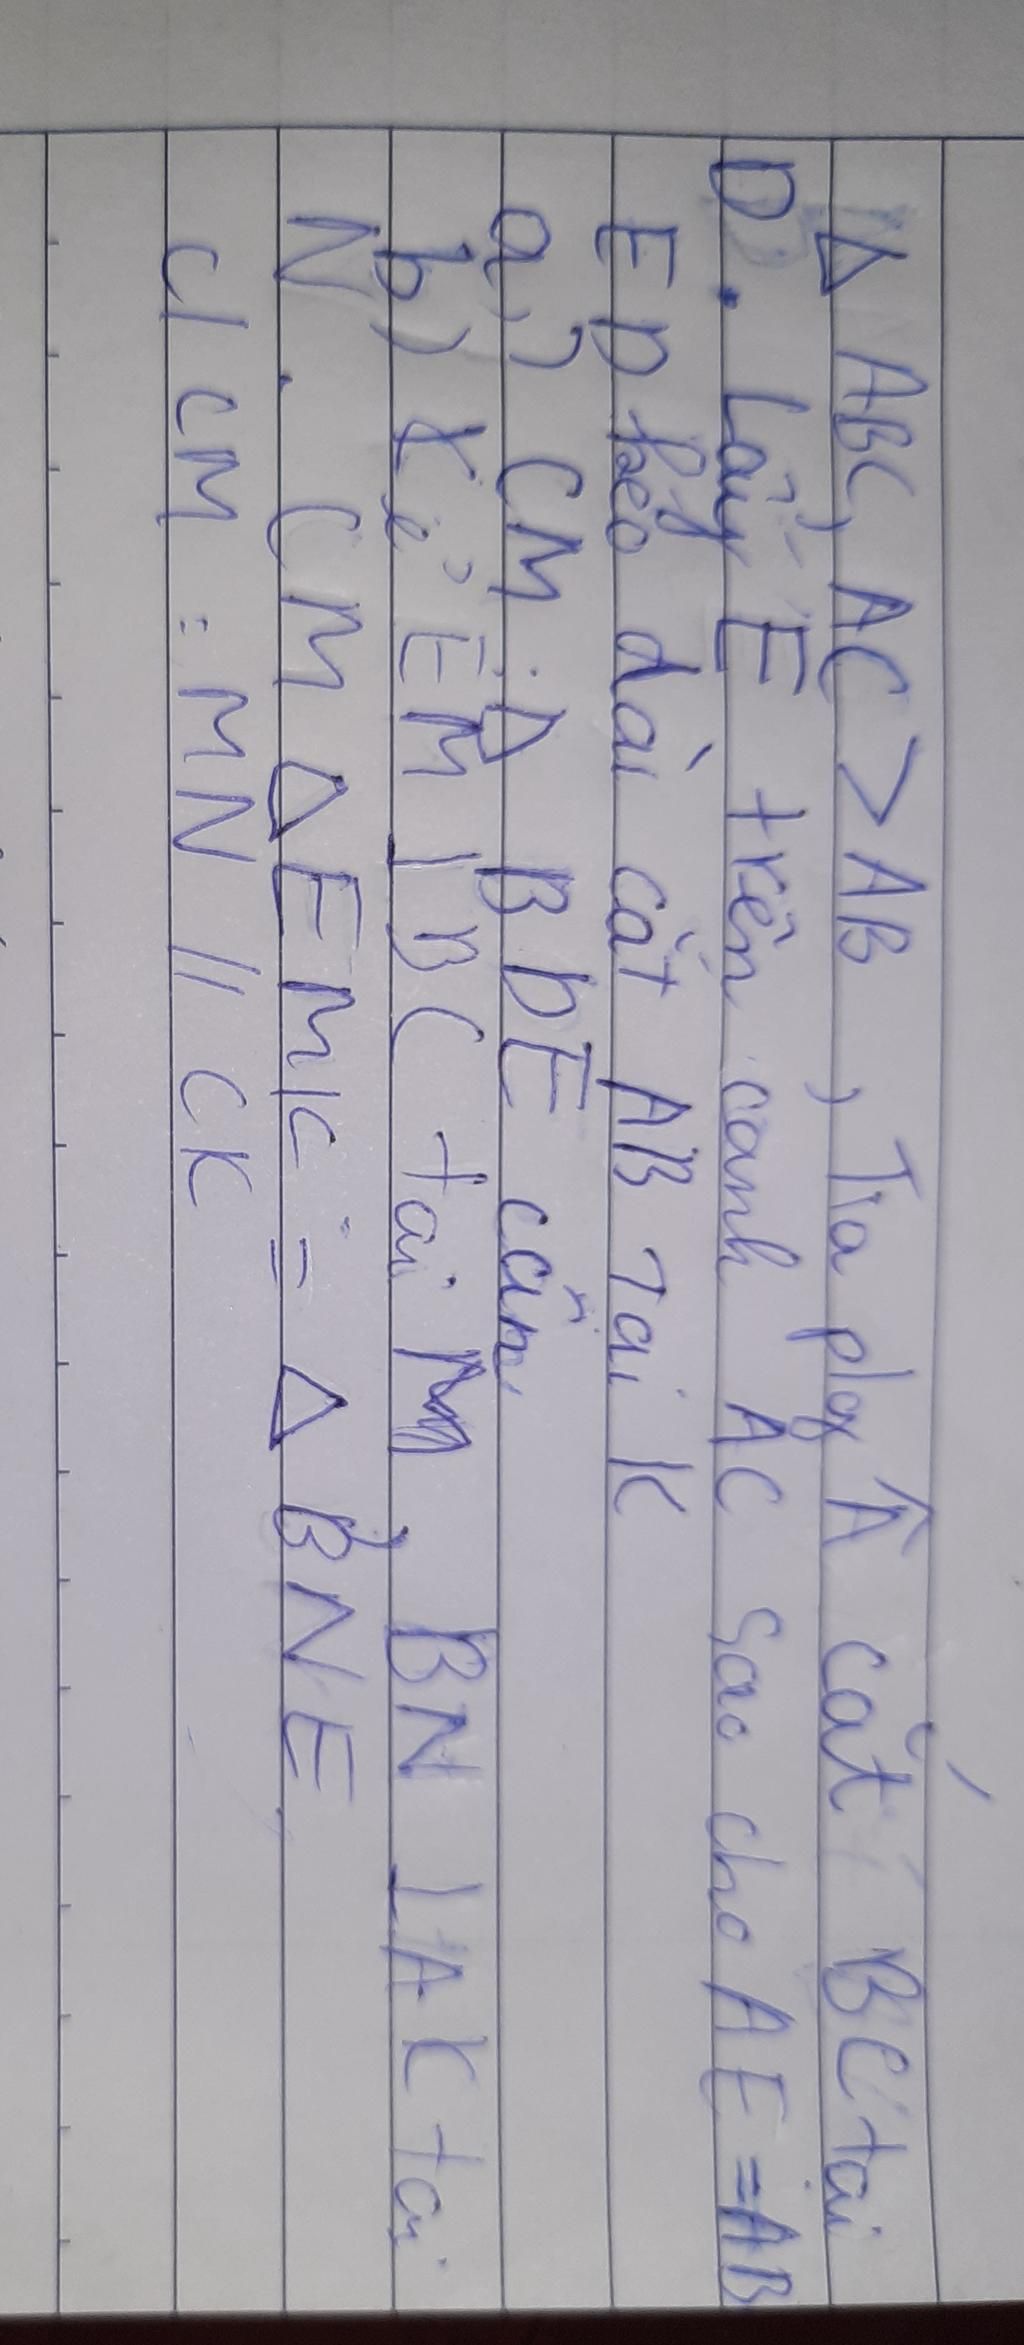 Δ ABC, AC > AB, Tia plg Â cắt BC tại
D. Lấy E trên cạnh AC sao cho AE = AB
ED kéo dài cắt AB tại K
a,) CM: Δ BDE cân
b) Kẻ EM ⊥ BC tại M, BN ⊥ AK tại
N. CM Δ EMC = Δ BNE
c/ CM: MN // CK